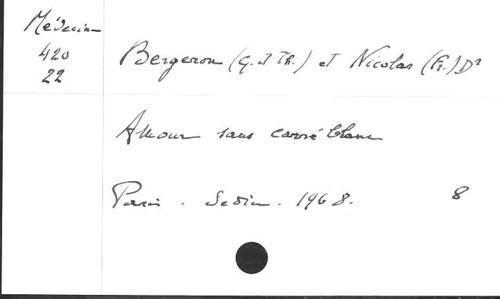 Médecine
420
22
Bergeron (G. et Th.) et Nicolas (Fr.) Dr
Amour sans carré blanc
Paris . Sedim . 1968. 8